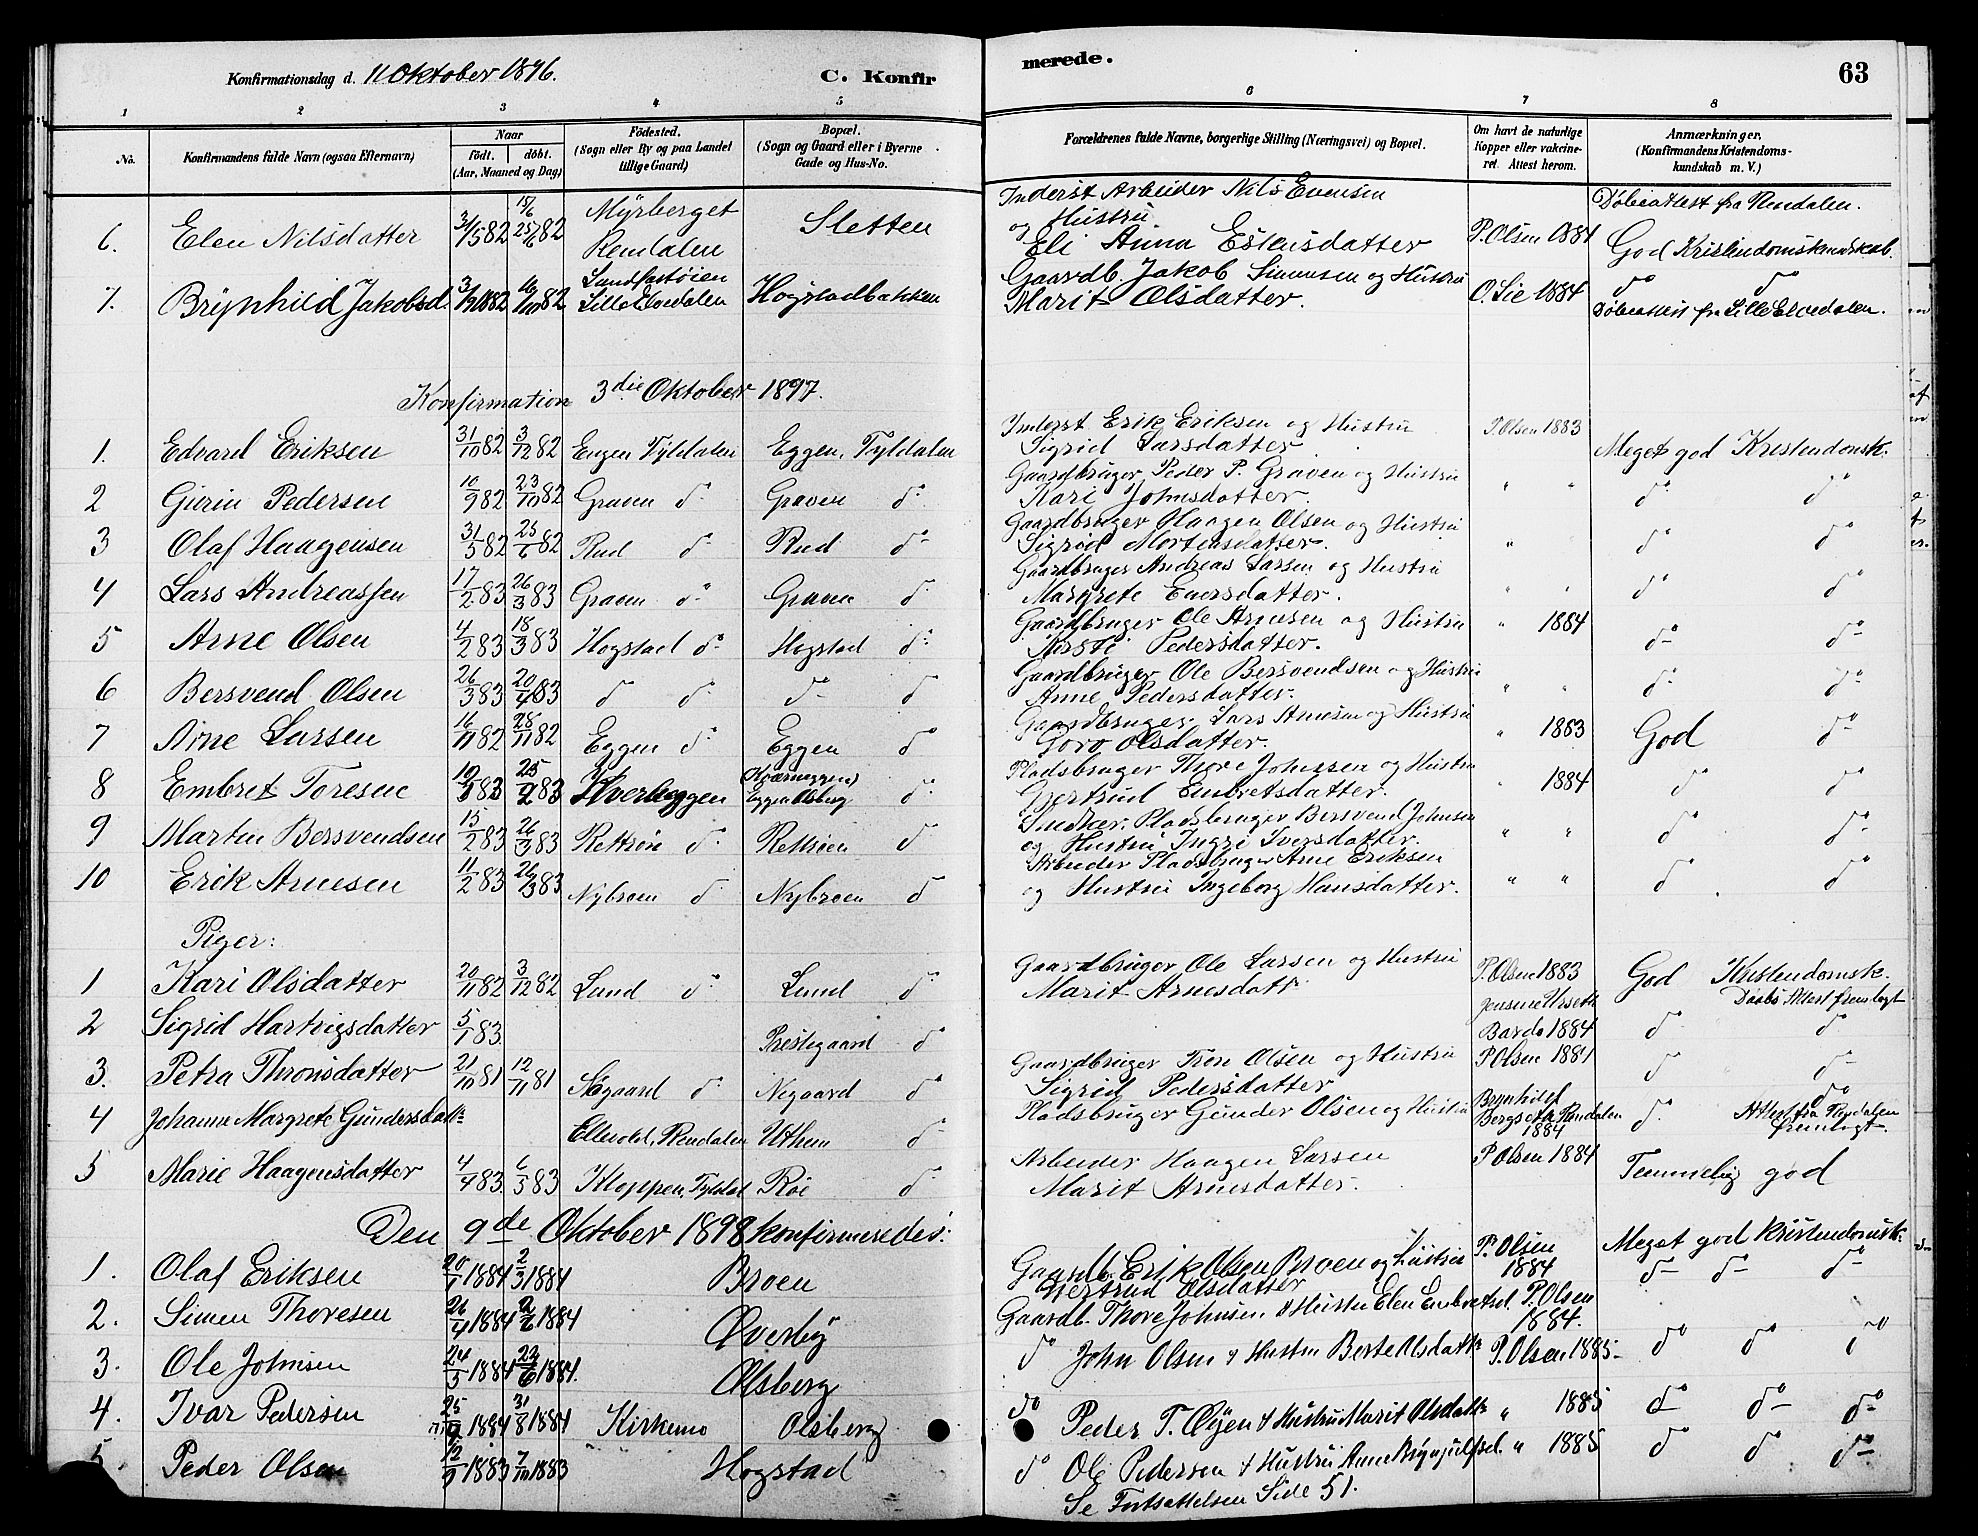 Konfirmationsdag d. 11 Oktober 1896. C. Konfir merede. 63
1 2 3 4 5 6 7 8
No. Konfirmandens fulde Navn (ogsaa Efternavn) Naar födt. döbt. (Aar, Maaned og Dag) Födested. (Sogn eller By og paa Landet tillige Gaard) Bopæl. (Sogn og Gaard eller i Byerne Gade og Hus-No. Forældrenes fulde Navne, borgerlige Stilling (Næringsvei) og Bopæl. Om havt de naturlige Kopper eller vakcineret. Attest herom. Anmærkninger. (Konfirmandens Kristendomskundskab m. V.)
6. Elen Nilsdatter 3/5 82 25/6 82 Myrberget Rendalen Sletten Inderst Arbeider Nils Evensen og Hustru Eli Anna Estensdatter P. Olsen 1884 Døbeattest fra Rendalen. God Kristendomskundskab.
7. Brynhild Jakobsd. 3/9 1882 16/10 82 Sandfastøien Lille Elvedalen Hogstadbakken Gaardb. Jakob Simensen og Hustru Marit Olsdatter. O. Lie 1884 do do Døbeattest fra Lille Elvedalen.
Konfirmation 3die Oktober 1897.
1. Edvard Eriksen 31/10 82 3/12 82 Engen Tyldalen Eggen, Tyldalen Inderst Erik Eriksen og Hustru Sigrid Larsdatter P. Olsen 1883 Meget god Kristendomsk.
2 Gurin Pedersen 10/9 82 23/10 82 Graven do Graven do Gaardbruger Peder P. Graven og Hustru Kari Johnsdatter. " " do do
3 Olaf Haagensen 31/5 82 25/6 82 Rud do Rud do Gaardbruger Haagen Olsen og Hustru Sigrid Mortensdatter. " do do
4 Lars Andreassen 17/2 83 26/3 83 Graven do Graven do Gaardbruger Andreas Larsen og Hustru Margrete Enersdatter. " " do do
5 Arne Olsen 4/2 83 18/3 83 Hogstad do Hogstad do Gaardbruger Ole Arnesen og Hustru Kirsti Pedersdatter. " 1884 do do
6 Bersvend Olsen 26/3 83 20/4 83 do do do do Gaardbruger Ole Bersvendsen og Hustru Anne Pedersdatter. " " do do
7 Arne Larsen 16/11 82 28/11 82 Eggen do Eggen do Gaardbruger Lars Arnesen og Hustru Goro Olsdatter. " 1883 God do
8 Embret Toresen 83 83 (Kværneggen) Eggen Olsberg do Pladsbruger Thore Johnsen og Hustru Gjertrud Embretsdatter. " 1884 do do
9 Martin Bersvendsen 15/2 83 26/3 83 Rettrøen do Rettrøen do Snedker. Pladsbruger Bersvend Johnsen og Hustru Ingri Iversdatter. " " do do
10 Erik Arnesen 11/2 83 26/3 83 Nybroen do Nybroen do Arbeider Pladsbruger Arne Eriksen og Hustru Ingeborg Hansdatter. " " do do
Piger:
1 Kari Olsdatter 20/11 82 3/12 82 Lund do Lund do Gaardbruger Ole Larsen og Hustru Marit Arnesdatt P. Olsen 1883 God Kristendomsk.
2 Sigrid Hartvigsdatter 5/1 83 Prestegaard do Bardo 1884 Daabs Attest fremlagt do do
3. Petra Thronsdatter 21/10 81 12/11 81 do Negaard do Gaardbruger Tron Olsen og Hustru Sigrid Pedersdatter P Olsen 1881 do do
4 Johanne Margrete Gundersdatt Rendalen Uthun do Pladsbruger Gunder Olsen og Hustru Brynhild Bergseth Rendalen 1884 do do Attest fra Rendalen fremlagt.
5 Marie Haagensdatter 4/4 83 6/5 83 Kloppen, Tyldal Røe do Arbeider Haagen Larsen Marit Arnesdatter. P Olsen 1884 Temmelig god
Den 9de Oktober 1898 konfirmeredes:
1. Olaf Eriksen 20/1 1884 2/3 1884 Broen Gaardb. Erik Olsen Broen og Hustru Gjertrud Olsdatter P. Olsen 1884 Meget god Kristendomsk. do do do
2. Simen Thoresen 26/4 1884 2/6 1884 Øverby Gaardb. Thore Johnsen & Hustru Elen Embretsd. P. Olsen 1884.
3. Ole Johnsen 24/5 1884 22/6 1884. Olsberg do John Olsen & Hustru Berte Olsdatt P. Olsen 1885 do do do
4. Ivar Pedersen 1884 31/8 1884 Kirkemo Olsberg do Peder T. Øien & Hustru Marit Olsdatt " 1885 do do do
5. Peder Olsen 12/9 1883 7/10 1883 Hogstad do Ole Pedersen & Hustru Anne Brynjulfsd. " 1885 do do do
Se Fortsættelsen Side 51.